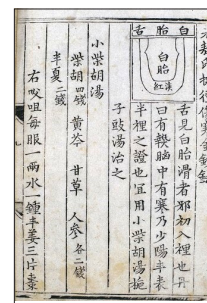 白胎舌
白胎
淡紅
舌見白胎滑者邪初入裡也丹
田有熱胸中有寒乃少陽半表
半裡之證也宜用小柴胡湯梔
子豉湯治之
小柴胡湯
柴胡四錢 黄芩 甘草 人參各二錢
半夏二錢
右㕮咀每服一兩水一鍾半姜三片棗